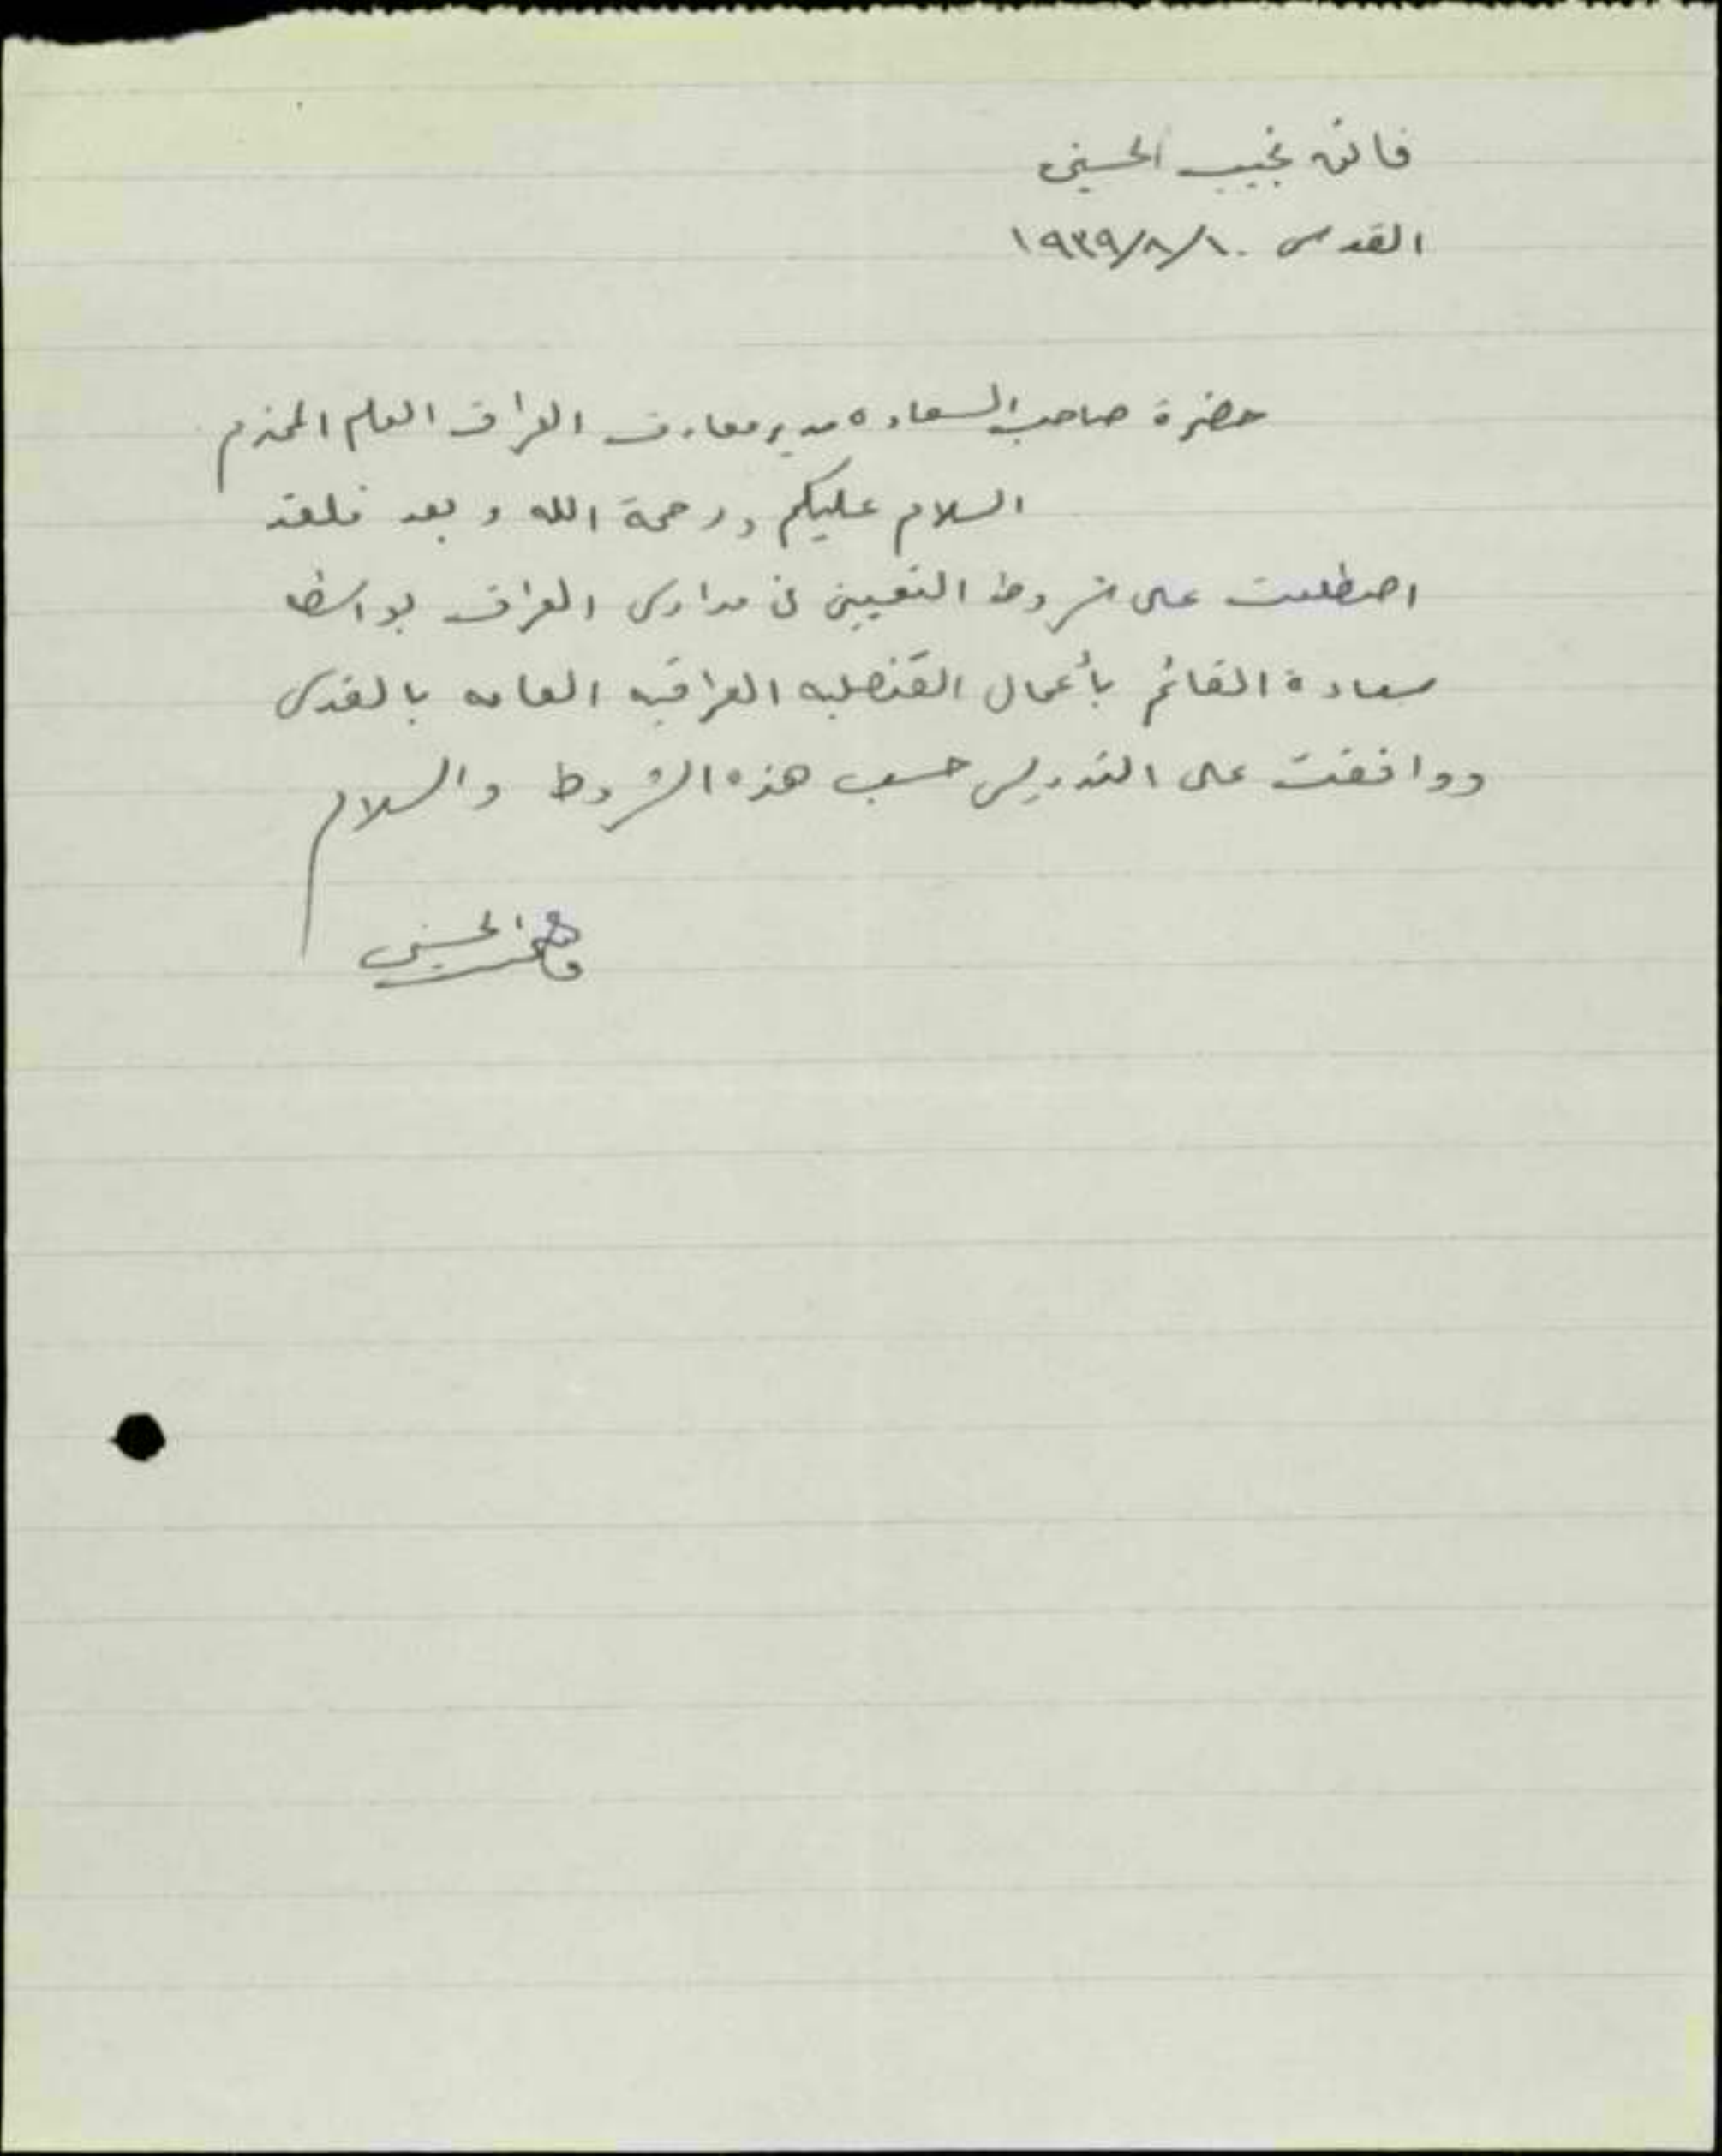 فائق نجيب الحسيني
القدس ١٩٣٩/٨/١٠
حضرة صاحب السعاده مدير معارف العراق العام المحترم
السلام عليكم ورحمة الله وبعد فلقد
اضطلعت على شروط التعيين في مدارس العراق بواسطة
سعادة القائم بأعمال القنصليه العراقيه العامه بالقدس
ووافقت على التدريس حسب هذه الشروط والسلام
فائق الحسيني